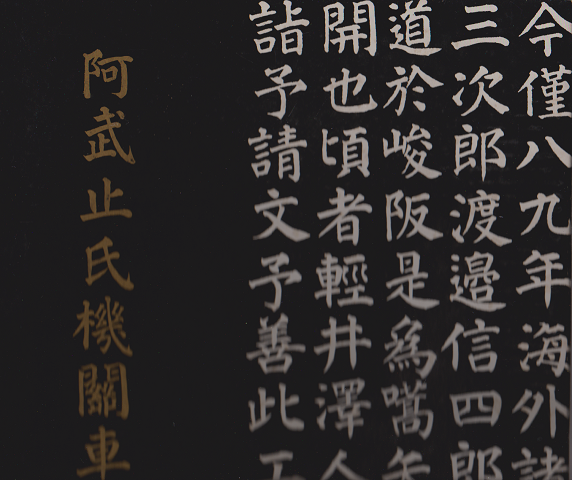 今僅八九年海外諸
三次郎渡邉信四郎
道於峻阪是爲嚆矢
開也頃者輕井澤人
詣予請文予善此工
阿武止氏機關車